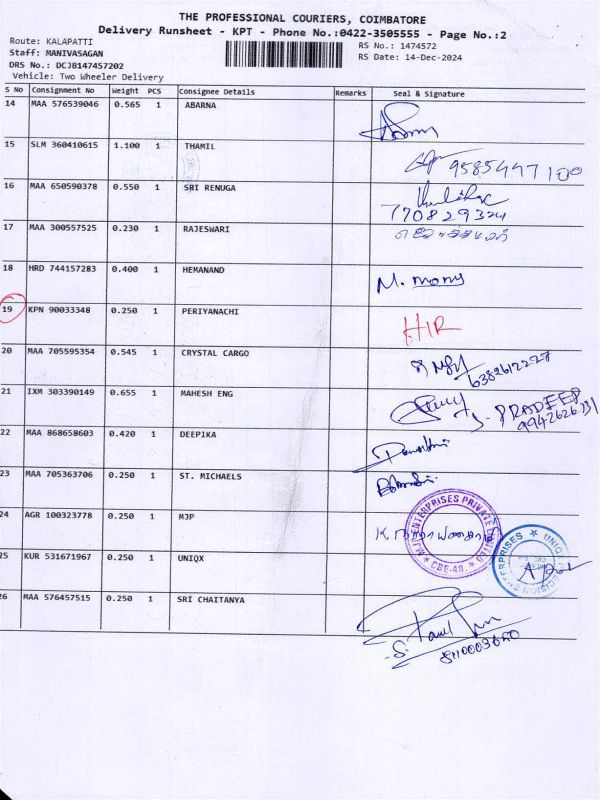 THE PROFESSIONAL COURIERS, COIMBATORE
Delivery Runsheet - KPT - Phone No.:0422-3505555 - Page No.:2
Route: KALAPATTI
Staff: MANIVASAGAN
DRS No.: DCJB147457202
Vehicle: Two Wheeler Delivery
RS No.: 1474572
RS Date: 14-Dec-2024
S No Consignment No Weight PCS Consignee Details Remarks Seal & Signature
14 MAA 576539046 0.565 1 ABARNA
15 SLM 360410615 1.100 1 THAMIL 9585447100
16 MAA 650590378 0.550 1 SRI RENUGA
770829324
17 MAA 300557525 0.230 1 RAJESWARI
18 HRD 744157283 0.400 1 HEMANAND M. mony
19 KPN 90033348 0.250 1 PERIYANACHI HIR
20 MAA 705595354 0.545 1 CRYSTAL CARGO 6382612227
21 IXM 303390149 0.655 1 MAHESH ENG S. PRADEEP
22 MAA 868658603 0.420 1 DEEPIKA
23 MAA 705363706 0.250 1 ST. MICHAELS
24 AGR 100323778 0.250 1 MJP
MJP ENTERPRISES PRIVATE LIMITED
* CBE-48. *
25 KUR 531671967 0.250 1 UNIQX
26 MAA 576457515 0.250 1 SRI CHAITANYA